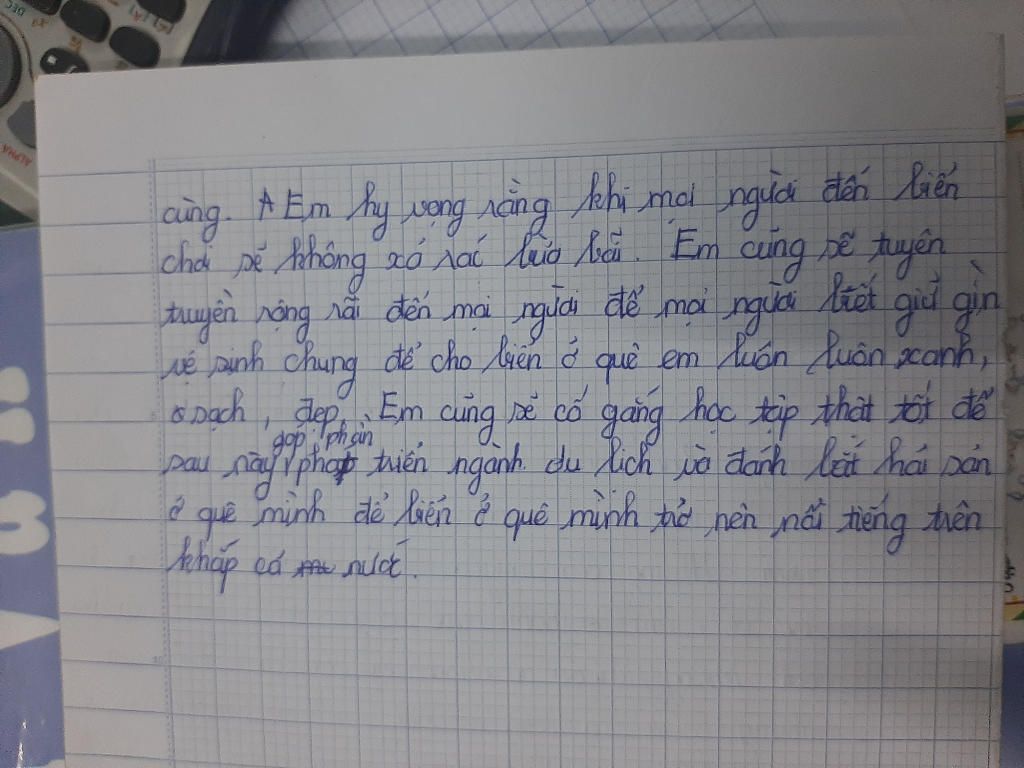 cùng. Em hy vọng rằng khi mọi người đến biển
chơi sẽ không xả rác bừa bãi. Em cũng sẽ tuyên
truyền rộng rãi đến mọi người để mọi người biết giữ gìn
vệ sinh chung để cho biển ở quê em luôn luôn xanh,
sạch, đẹp. Em cũng sẽ cố gắng học tập thật tốt để
góp phần
sau này phát triển ngành du lịch và đánh bắt hải sản
ở quê mình để biển ở quê mình trở nên nổi tiếng trên
khắp cả nước.
ALPHA